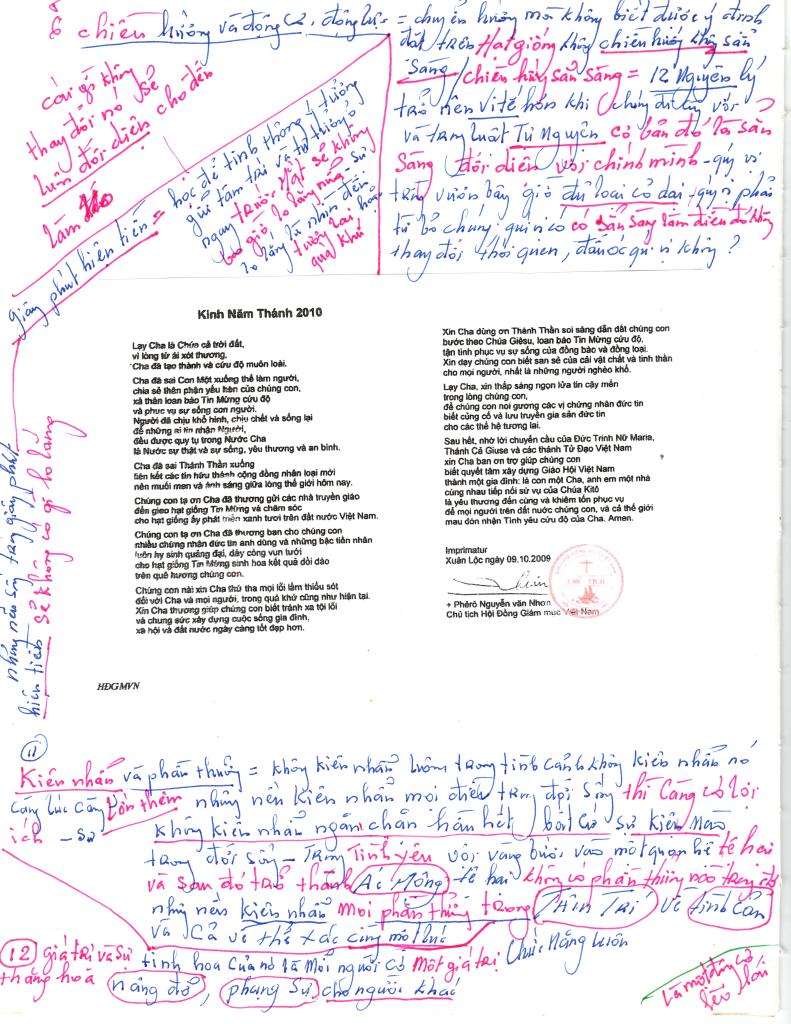 chiều hướng và động cơ, động lực = chuyển hướng mà không biết được ý định
đặt trên Hạt giống không chiều hướng không sẵn
Sàng / chiều hướng sẵn sàng = 12 Nguyên lý
trở nên vì thế hơn khi chúng đi cùng với
và trong luật Tự Nguyện có bản đồ là sẵn
Sàng đối diện với chính mình - quý vị
trong vườn bây giờ đủ loại cỏ dại quý vị phải
từ bỏ chúng quí vị có có sẵn sàng làm điều đó không
thay đổi thói quen, đầu óc quí vị không?
cái gì không
thay đổi nó sẽ
luôn đối diện cho đến
giây phút hiện tiền =
học để tinh thông ý tưởng
gửi tâm trí và tư tưởng ở
ngay trước mặt sẽ không
bao giờ lo lắng nữa sự
lo lắng là nhìn đến
tương lai, hoặc
quá khứ
những nếu sống trong giây phút
hiện tiền sẽ không có gì lo lắng
Kinh Năm Thánh 2010
Lạy Cha là Chúa cả trời đất,
vì lòng từ ái xót thương,
Cha đã tạo thành và cứu độ muôn loài.
Cha đã sai Con Một xuống thế làm người,
chia sẻ thân phận yếu hèn của chúng con,
xả thân loan báo Tin Mừng cứu độ
và phục vụ sự sống con người.
Người đã chịu khổ hình, chịu chết và sống lại
để những ai tin nhận Người,
đều được quy tụ trong Nước Cha
là Nước sự thật và sự sống, yêu thương và an bình.
Cha đã sai Thánh Thần xuống
liên kết các tín hữu thành cộng đồng nhân loại mới
nên muối men và ánh sáng giữa lòng thế giới hôm nay.
Chúng con tạ ơn Cha đã thương gửi các nhà truyền giáo
đến gieo hạt giống Tin Mừng và chăm sóc
cho hạt giống ấy phát triển xanh tươi trên đất nước Việt Nam.
Chúng con tạ ơn Cha đã thương ban cho chúng con
nhiều chứng nhân đức tin anh dũng và những bậc tiền nhân
luôn hy sinh quảng đại, dày công vun tưới
cho hạt giống Tin Mừng sinh hoa kết quả dồi dào
trên quê hương chúng con.
Chúng con nài xin Cha thứ tha mọi lỗi lầm thiếu sót
đối với Cha và mọi người, trong quá khứ cũng như hiện tại.
Xin Cha thương giúp chúng con biết tránh xa tội lỗi
và chung sức xây dựng cuộc sống gia đình,
xã hội và đất nước ngày càng tốt đẹp hơn.
HĐGMVN
Xin Cha dùng ơn Thánh Thần soi sáng dẫn dắt chúng con
bước theo Chúa Giêsu, loan báo Tin Mừng cứu độ,
tận tình phục vụ sự sống của đồng bào và đồng loại.
Xin dạy chúng con biết san sẻ của cải vật chất và tinh thần
cho mọi người, nhất là những người nghèo khổ.
Lạy Cha, xin thắp sáng ngọn lửa tin cậy mến
trong lòng chúng con,
để chúng con noi gương các vị chứng nhân đức tin
biết củng cố và lưu truyền gia sản đức tin
cho các thế hệ tương lai.
Sau hết, nhờ lời chuyển cầu của Đức Trinh Nữ Maria,
Thánh Cả Giuse và các thánh Tử Đạo Việt Nam
xin Cha ban ơn trợ giúp chúng con
biết quyết tâm xây dựng Giáo Hội Việt Nam
thành một gia đình: là con một Cha, anh em một nhà
cùng nhau tiếp nối sứ vụ của Chúa Kitô
là yêu thương đến cùng và khiêm tốn phục vụ
để mọi người trên đất nước chúng con, và cả thế giới
mau đón nhận Tình yêu cứu độ của Cha. Amen.
Imprimatur
Xuân Lộc ngày 09.10.2009
+ Phêrô Nguyễn văn Nhơn
Chủ tịch Hội Đồng Giám mục Việt Nam
CHỦ TỊCH
11
Kiên nhẫn và phần thưởng = không kiên nhẫn luôn trong tình cảnh không kiên nhẫn nó
càng lúc càng lớn thêm những nên kiên nhẫn mọi điều trong đời sống thì càng có lợi
ích - Sự không kiên nhẫn ngăn chặn hầu hết bất cứ sự kiện nào
trong đời sống - Trong Tình yêu vội vàng bước vào một quan hệ tê hai
và sau đó trở thành Ác Mộng tê hai không có phần thưởng nào trong đó
những nên kiên nhẫn mọi phần thưởng trong Thần Trí Về tình Cảm
và Cả về thể xác cùng một lúc
12 giá trị và Sự tinh hoa của nó là Mỗi người có Một giá trị Chức Năng luôn
thăng hoá nâng đỡ, phụng Sự cho người khác